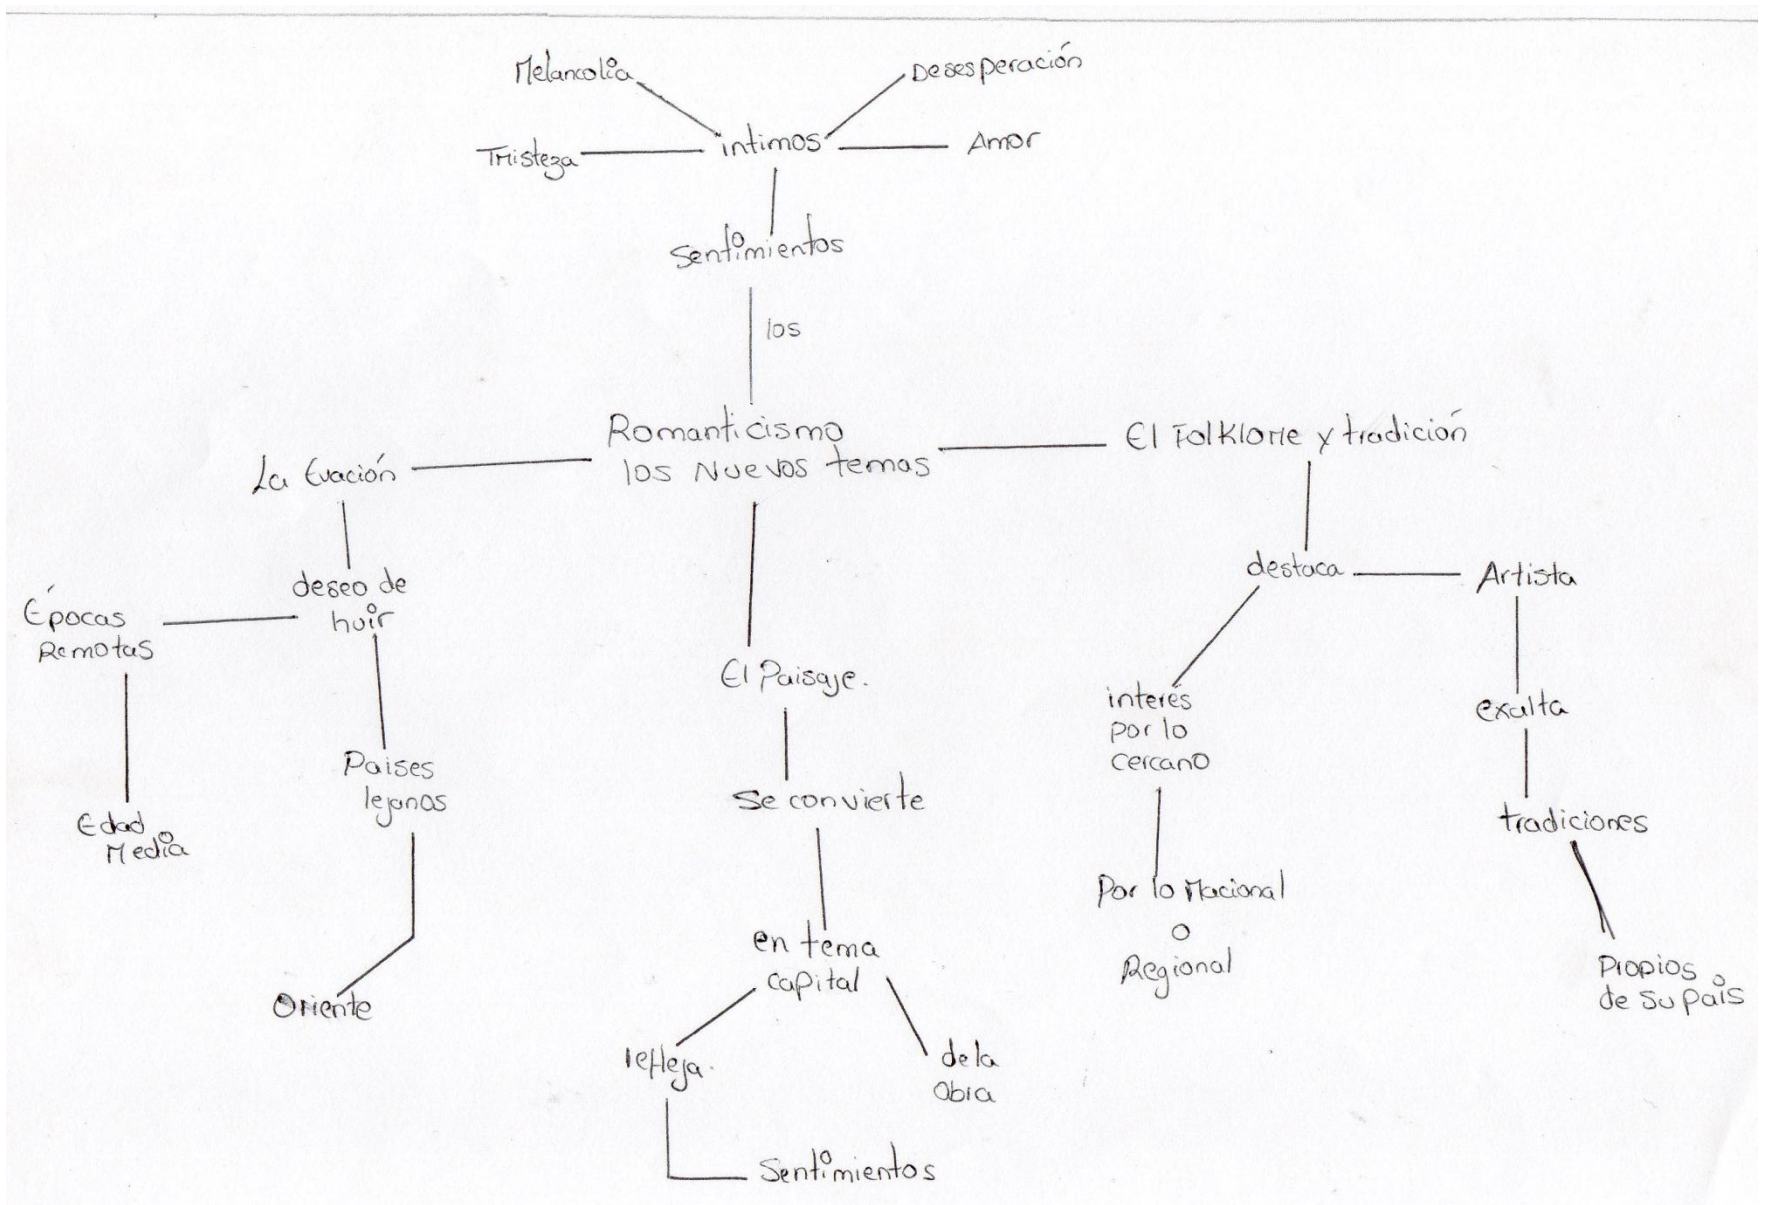 Melancolia
Desesperación
Tristeza
intimos
Amor
Sentimientos
los
Romanticismo
los Nuevos temas
El Folklore y tradición
La Evación
deseo de
huir
Épocas
Remotas
Edad
Media
Paises
lejanos
Oriente
El Paisaje.
Se convierte
en tema
capital
refleja.
de la
obra
Sentimientos
destaca
Artista
interés
por lo
cercano
Por lo Nacional
o
Regional
exalta
tradiciones
Propios
de su pais